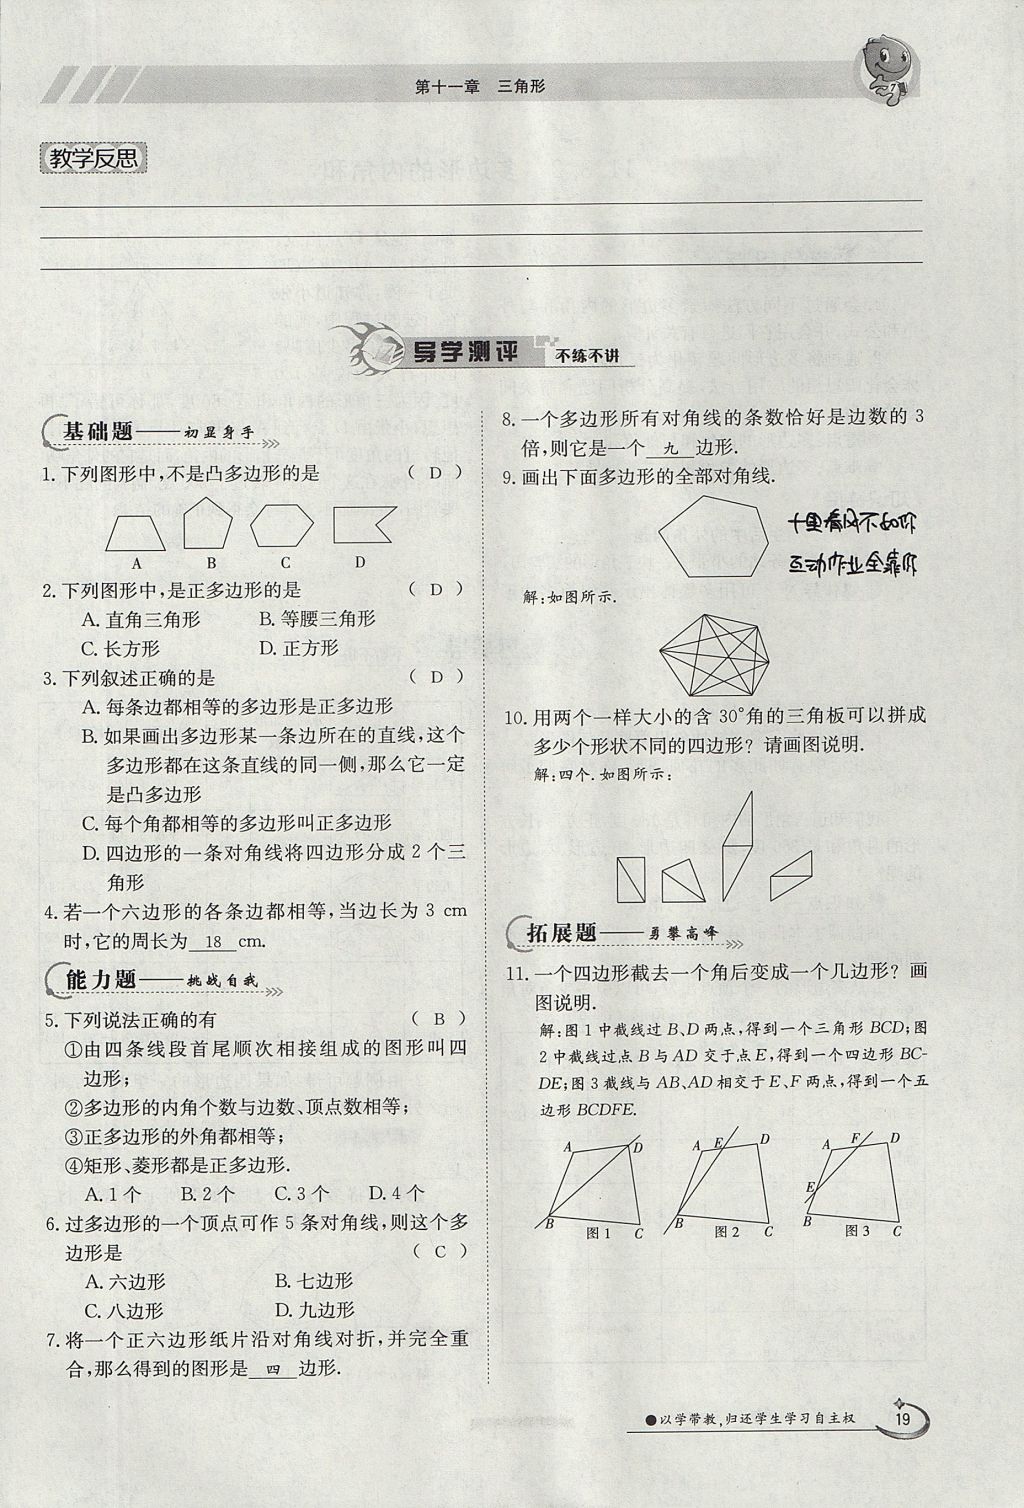 第十一章 三角形
教学反思
导学测评 不练不讲
基础题——初显身手
1. 下列图形中,不是凸多边形的是 ( D )
A B C D
2. 下列图形中,是正多边形的是 ( D )
A. 直角三角形 B. 等腰三角形
C. 长方形 D. 正方形
3. 下列叙述正确的是 ( D )
A. 每条边都相等的多边形是正多边形
B. 如果画出多边形某一条边所在的直线,这个
多边形都在这条直线的同一侧,那么它一定
是凸多边形
C. 每个角都相等的多边形叫正多边形
D. 四边形的一条对角线将四边形分成 2 个三
角形
4. 若一个六边形的各条边都相等,当边长为 3 cm
时,它的周长为 18 cm.
能力题——挑战自我
5. 下列说法正确的有 ( B )
①由四条线段首尾顺次相接组成的图形叫四
边形;
②多边形的内角个数与边数、顶点数相等;
③正多边形的外角都相等;
④矩形、菱形都是正多边形.
A. 1 个 B. 2 个 C. 3 个 D. 4 个
6. 过多边形的一个顶点可作 5 条对角线,则这个多
边形是 ( C )
A. 六边形 B. 七边形
C. 八边形 D. 九边形
7. 将一个正六边形纸片沿对角线对折,并完全重
合,那么得到的图形是 四 边形.
8. 一个多边形所有对角线的条数恰好是边数的 3
倍,则它是一个 九 边形.
9. 画出下面多边形的全部对角线.
十里春风不如你
互动作业全靠你
解:如图所示.
10. 用两个一样大小的含 30°角的三角板可以拼成
多少个形状不同的四边形? 请画图说明.
解:四个. 如图所示:
拓展题——勇攀高峰
11. 一个四边形截去一个角后变成一个几边形? 画
图说明.
解:图 1 中截线过 B、D 两点,得到一个三角形 BCD;图
2 中截线过点 B 与 AD 交于点 E,得到一个四边形 BC-
DE;图 3 截线与 AB、AD 相交于 E、F 两点,得到一个五
边形 BCDFE.
A D B C 图 1
A E D B C 图 2
A F D E B C 图 3
●以学带教,归还学生学习自主权 19